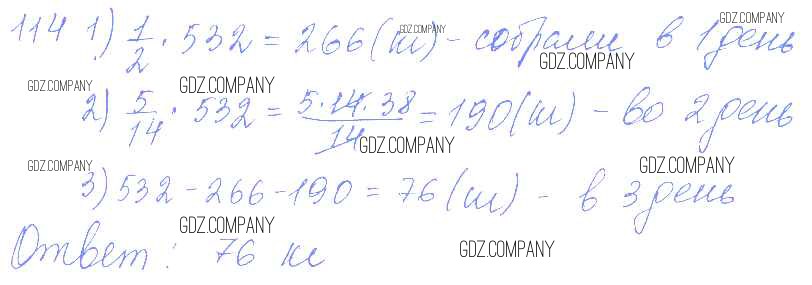 GDZ.COMPANY
114 1) 1/2 · 532 = 266 (ш) - собрали в 1 день
GDZ.COMPANY
GDZ.COMPANY
GDZ.COMPANY GDZ.COMPANY
2) 5/14 · 532 = 5·14·38/14 = 190 (ш) - во 2 день
GDZ.COMPANY
GDZ.COMPANY GDZ.COMPANY
3) 532 - 266 - 190 = 76 (ш) - в 3 день
GDZ.COMPANY
Ответ: 76 ш
GDZ.COMPANY